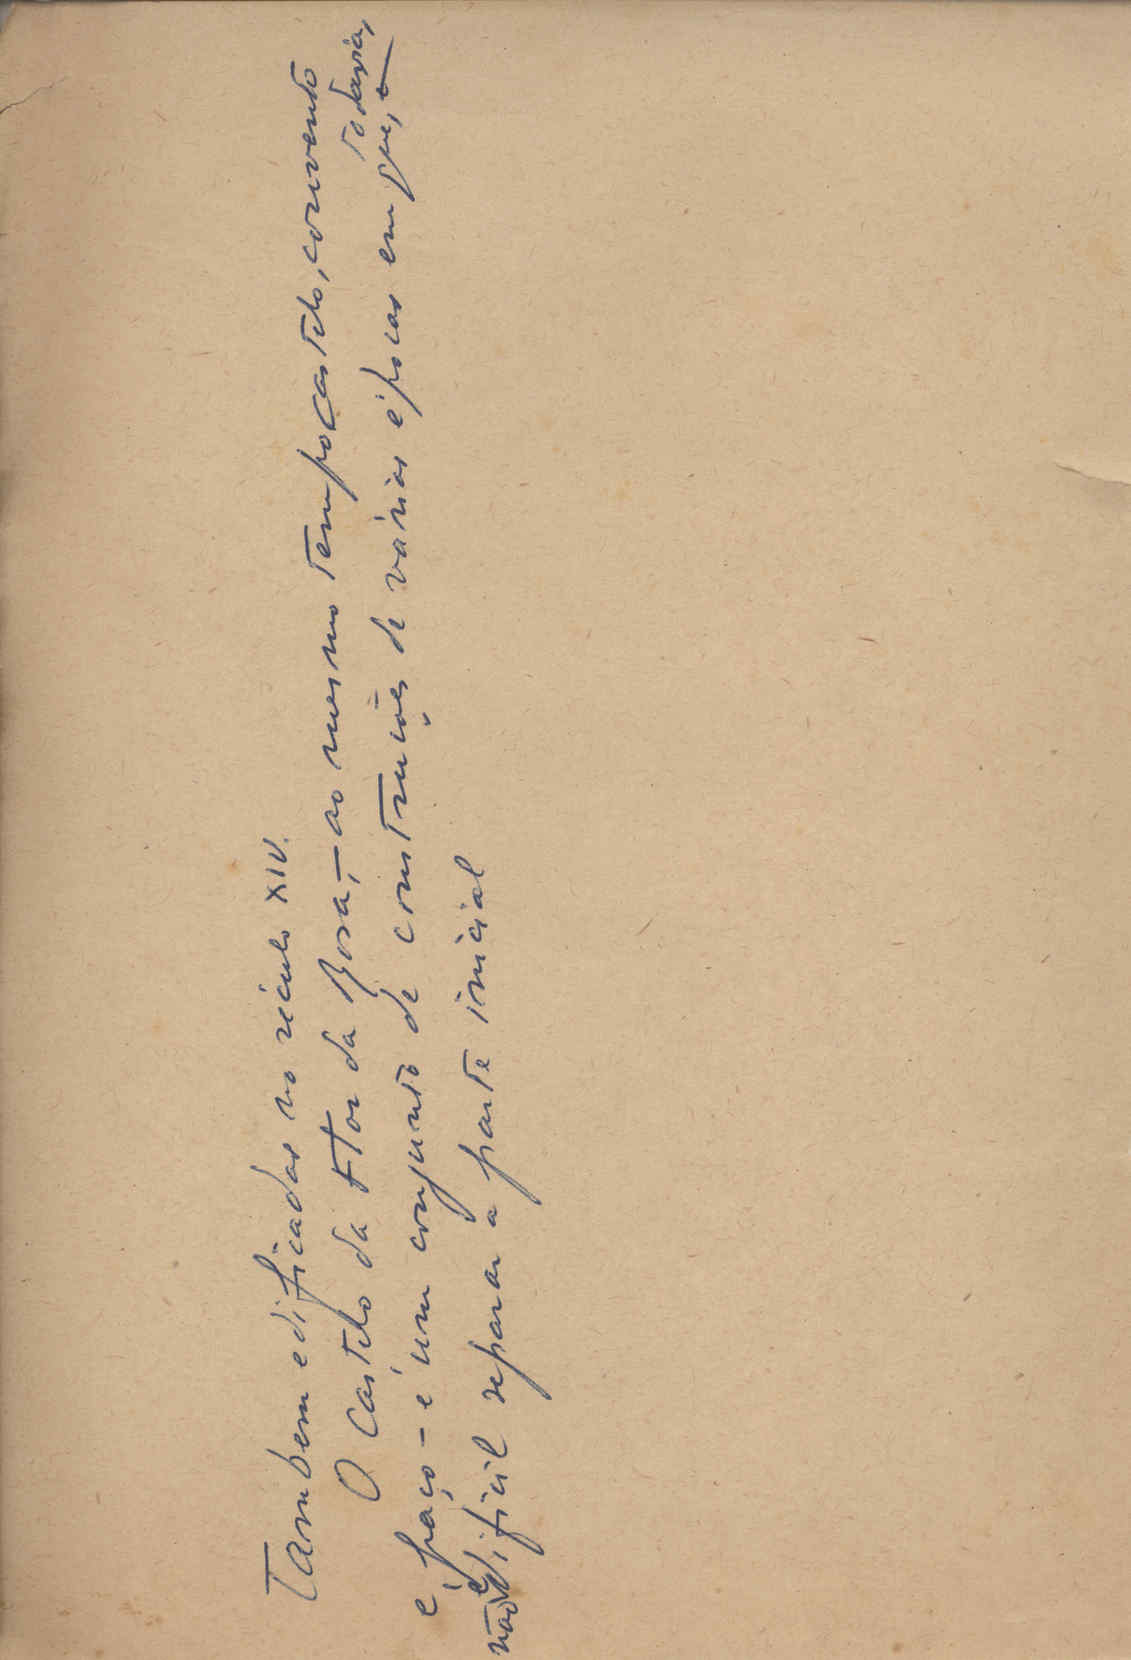 Tambem edificadas no século XIV.
O Castelo da Flor da Rosa, – ao mesmo tempo castelo, convento
e paço – é um conjunto de construções de várias épocas em que, todavia,
não é dificil separar a parte inicial